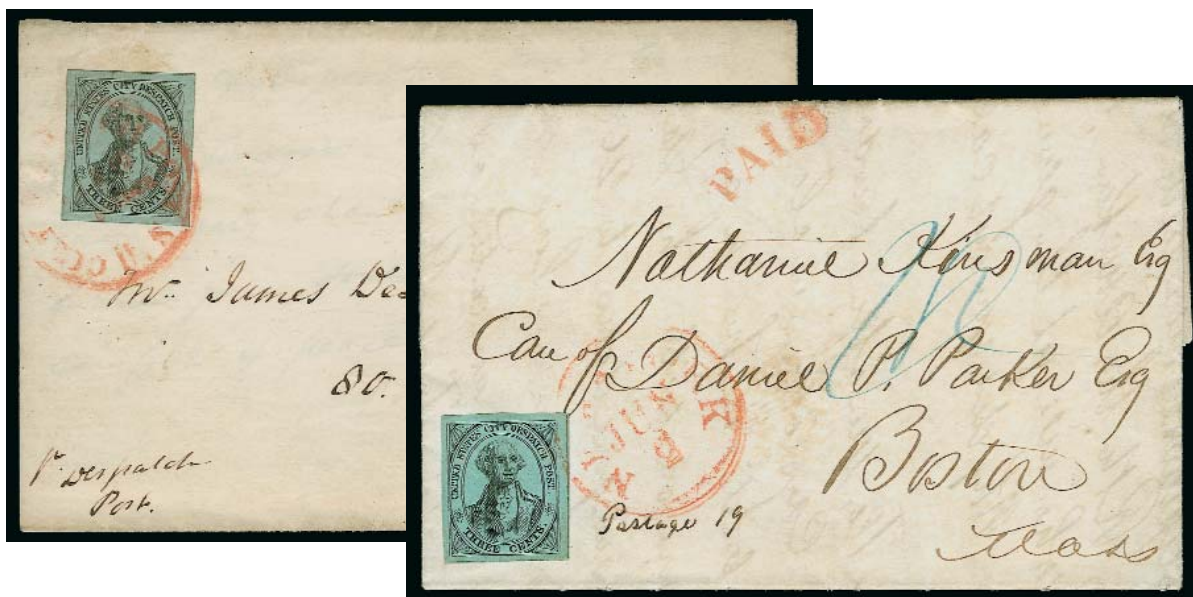 UNITED STATES CITY DESPATCH POST.
THREE CENTS
Mr. James
80.
pr Despatch
Post.
PAID
Nathaniel Kinsman Esq
Care of Daniel P. Parker Esq
Boston
Mass
NEW YORK
JUN
UNITED STATES CITY DESPATCH POST.
THREE CENTS
Postage 19